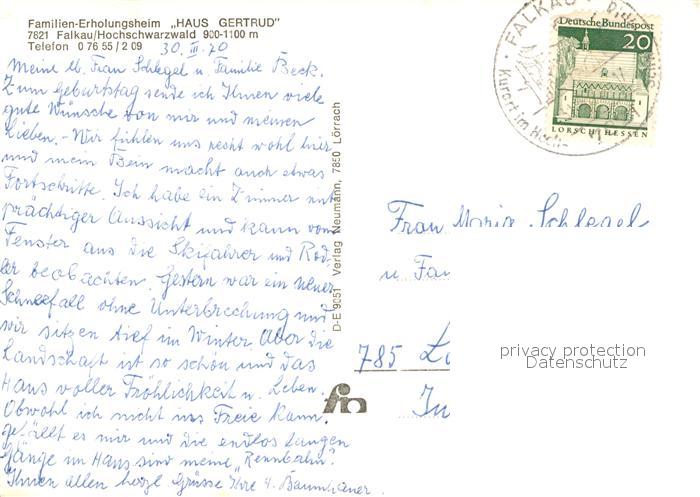 Familien-Erholungsheim „HAUS GERTRUD"
7821 Falkau/Hochschwarzwald 900-1100 m
Telefon 0 76 55 / 2 09 30. III. 70
Meine lb. Frau Schlegel u. Familie Beck.
Zum Geburtstag sende ich Ihnen viele
gute Wünsche von mir und meinen
Lieben. - Wir fühlen uns recht wohl hier
und mein Bein macht auch etwas
Fortschritte. Ich habe ein Zimmer mit
prächtiger Aussicht und kann vom
Fenster aus die Skifahrer und Rod-
ler beobachten. Gestern war ein neuer
Schneefall ohne Unterbrechung und
wir sitzen tief im Winter. Aber die
Landschaft ist so schön und das
Haus voller Fröhlichkeit u. Leben.
Obwohl ich nicht ins Freie kann,
gefällt es mir und die endlos langen
Gänge im Haus sind meine „Rennbahn".
Ihnen allen herzl. Grüsse Ihre H. Baumhauer.
D-E 9851 Verlag Neumann, 7850 Lörrach
fn
FALKAU
Kurort im Hoch-
Deutsche Bundespost
20
LORSCH/HESSEN
Frau Maria Schlegel
u. Fam
785 Lö
In
privacy protection
Datenschutz